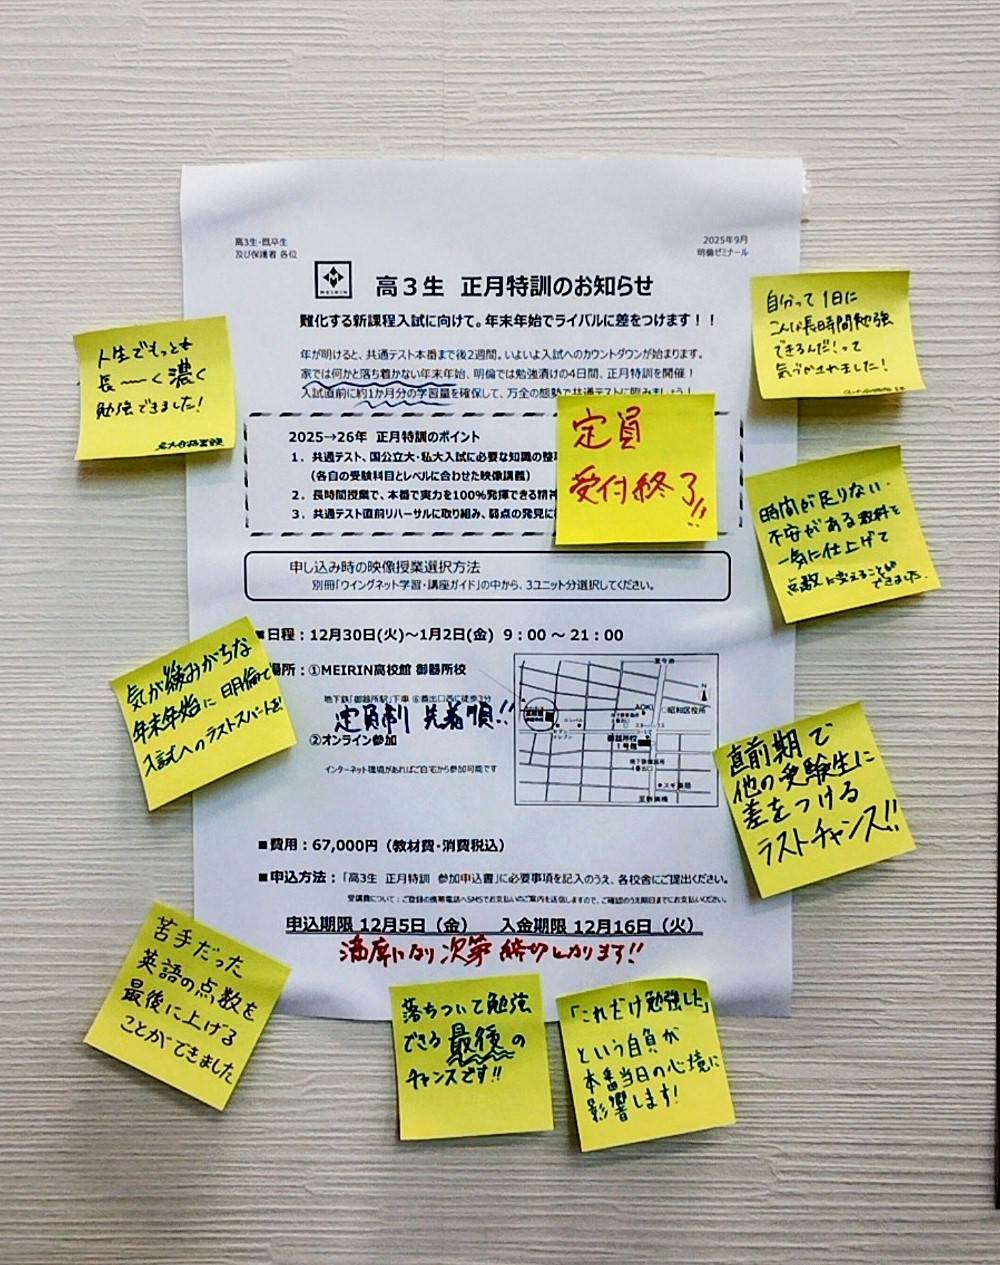 高3生・既卒生
及び保護者 各位
2025年9月
明倫ゼミナール
MEIRIN
高3生 正月特訓のお知らせ
難化する新課程入試に向けて。年末年始でライバルに差をつけます！！
年が明けると、共通テスト本番まで後2週間。いよいよ入試へのカウントダウンが始まります。
家では何かと落ち着かない年末年始、明倫では勉強漬けの4日間、正月特訓を開催！
入試直前に約1か月分の学習量を確保して、万全の態勢で共通テストに臨みましょう！
2025→26年 正月特訓のポイント
1．共通テスト、国公立大・私大入試に必要な知識の整理
（各自の受験科目とレベルに合わせた映像講義）
2．長時間授業で、本番で実力を100%発揮できる精神
3．共通テスト直前リハーサルに取り組み、弱点の発見に
定員
受付終了!!
申し込み時の映像授業選択方法
別冊「ウイングネット学習・講座ガイド」の中から、3ユニット分選択してください。
■日程：12月30日(火)～1月2日(金) 9：00 ～ 21：00
場所：①MEIRIN高校館 御器所校
地下鉄「御器所駅」下車 ⑥番出口西に徒歩3分
定員制 先着順!!
②オンライン参加
インターネット環境があればご自宅から参加可能です
至今池
N
AOKI
昭和区役所
御器所校
1号館
スギ薬局
■費用：67,000円（教材費・消費税込）
■申込方法：「高3生 正月特訓 参加申込書」に必要事項を記入のうえ、各校舎にご提出ください。
受講費について：ご登録の携帯電話へSMSでお支払いのご案内を送信しますので、ご確認のうえ期日までにお支払いください。
申込期限 12月5日（金） 入金期限 12月16日（火）
満席になり次第 締切となります!!
人生でもっとも
長～く濃く
勉強できました!
自分って1日に
こんな長時間勉強
できるんだ!って
気づかされました!
時間が足りない・
不安がある教科を
一気に仕上げて
点数に変えることが
できました.
気が緩みがちな
年末年始に明倫で
入試へのラストスパートを!
直前期で
他の受験生に
差をつける
ラストチャンス!!
苦手だった
英語の点数を
最後に上げる
ことができました
落ちついて勉強
できる最後の
チャンスです!!
「これだけ勉強した」
という自負が
本番当日の心境に
影響します!